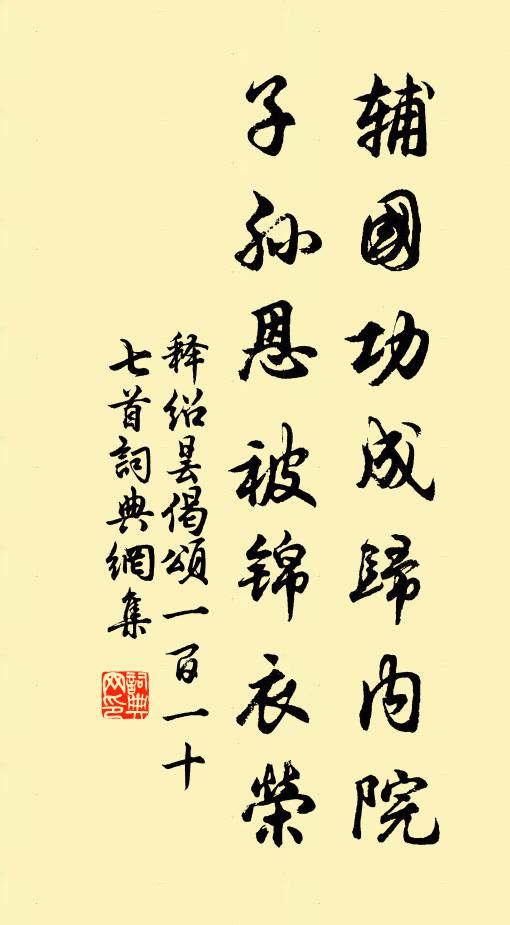 辅國功成歸内院
子孙恩被锦衣榮
释绍昙偈頌一百一十
七首詞典網集
詞典网印